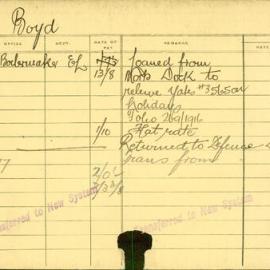 Boyd
OFFICE DEPT. RATE OF PAY REMARKS
Boilermaker EL Loaned from
13/8 Morts Dock to
relieve
holidays
Folio 269/1916
1/10 Flat rate
Returned to Defence
2/0 trans from
Transferred to New System
Transferred to New System